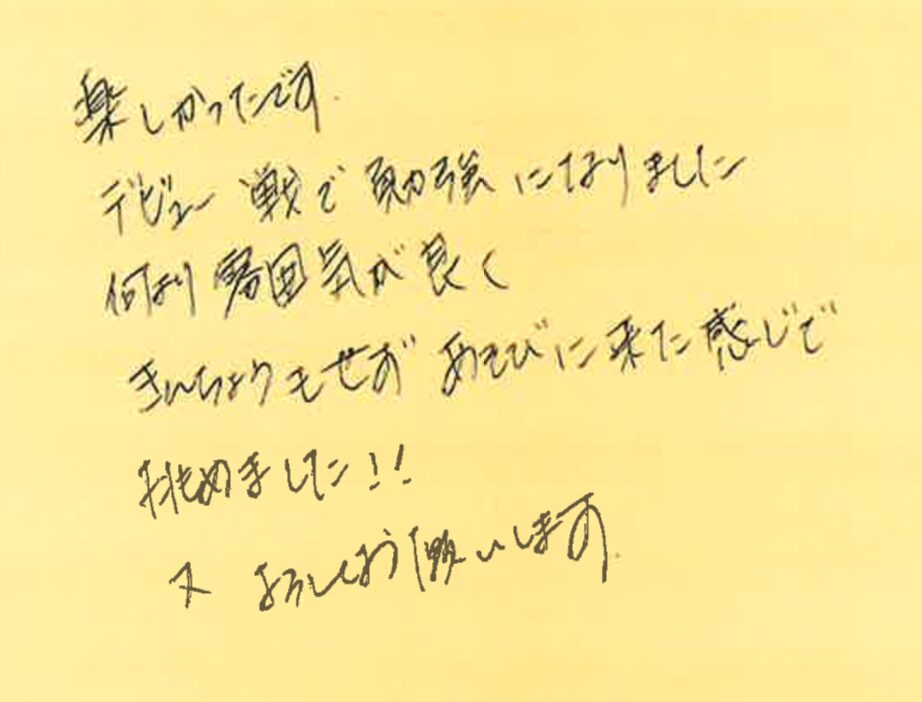 楽しかったです.
デビュー戦で勉強になりました
何より雰囲気が良く
きんちょうもせず あそびに来た感じで
挑めました!!
又 よろしくお願いします.